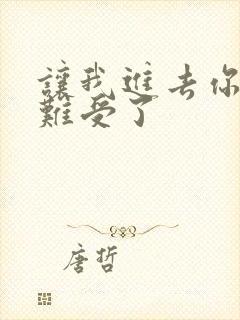 讓我進去你
難受了
唐哲